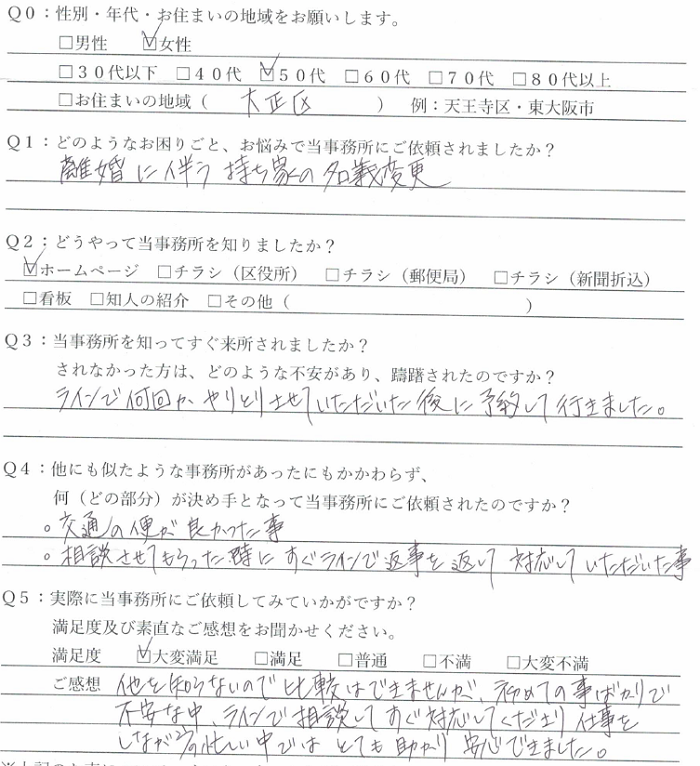 Q0：性別・年代・お住まいの地域をお願いします。
□男性 ☑女性
□30代以下 □40代 ☑50代 □60代 □70代 □80代以上
□お住まいの地域（ 大正区 ） 例：天王寺区・東大阪市
Q1：どのようなお困りごと、お悩みで当事務所にご依頼されましたか？
離婚に伴う持ち家の名義変更
Q2：どうやって当事務所を知りましたか？
☑ホームページ □チラシ（区役所） □チラシ（郵便局） □チラシ（新聞折込）
□看板 □知人の紹介 □その他（ ）
Q3：当事務所を知ってすぐ来所されましたか？
されなかった方は、どのような不安があり、躊躇されたのですか？
ラインで何回か、やりとりさせていただいた後に予約して行きました。
Q4：他にも似たような事務所があったにもかかわらず、
何（どの部分）が決め手となって当事務所にご依頼されたのですか？
。交通の便が良かった事
。相談させてもらった時にすぐラインで返事を返して対応していただいた事
Q5：実際に当事務所にご依頼してみていかがですか？
満足度及び素直なご感想をお聞かせください。
満足度 ☑大変満足 □満足 □普通 □不満 □大変不満
ご感想 他を知らないので比較はできませんが、初めての事ばかりで
不安な中、ラインで相談してすぐ対応してくださり 仕事を
しながらの忙しい中ではとても助かり 安心できました。